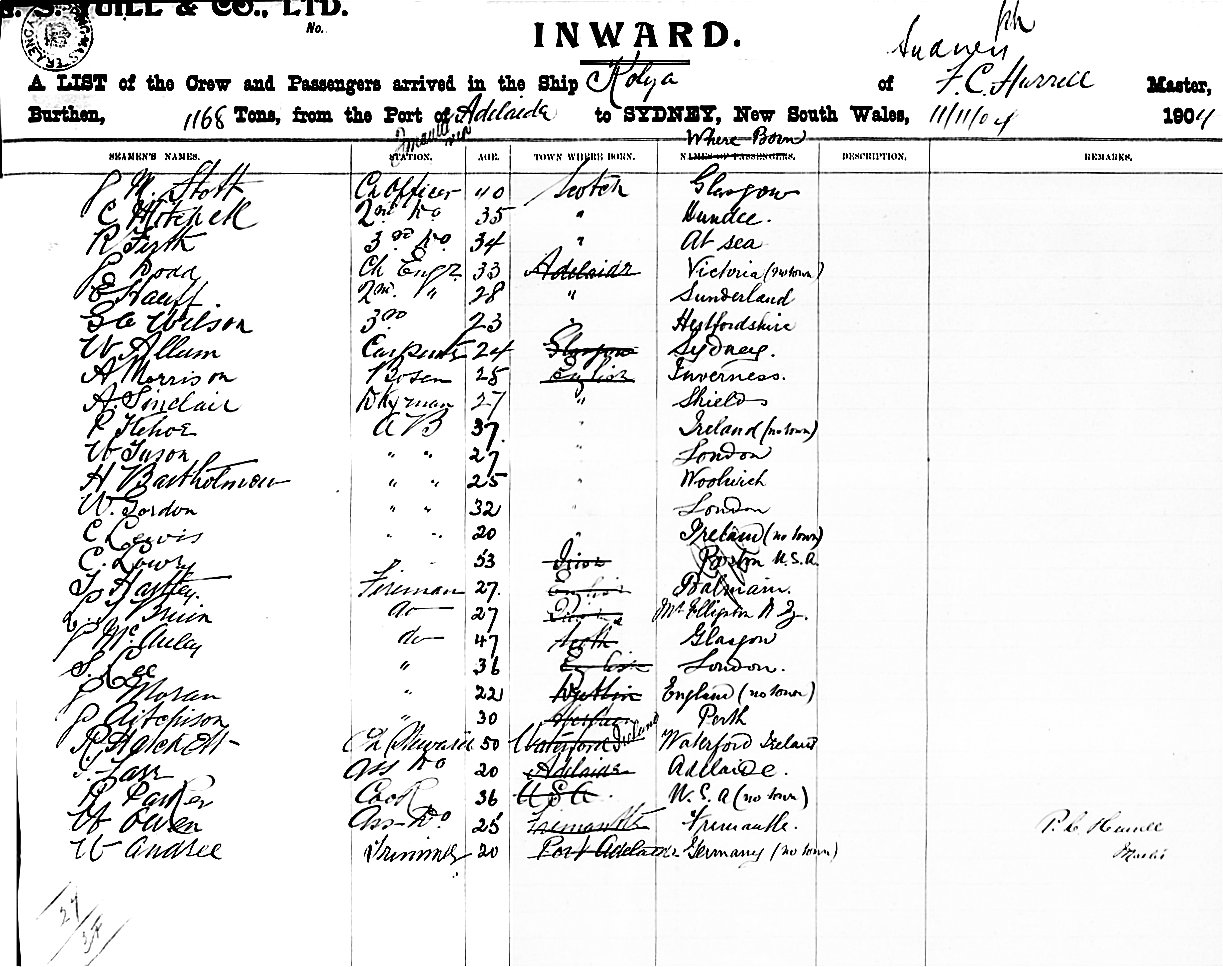 YUILL & CO., LTD.
No.
INWARD.
A LIST of the Crew and Passengers arrived in the Ship Kolya of F. C. Hurrell Master,
Burthen, 1168 Tons, from the Port of Adelaide to SYDNEY, New South Wales, 11/11/04 1904
Where Born
SEAMEN'S NAMES. STATION. AGE. TOWN WHERE BORN. NAMES OF PASSENGERS. DESCRIPTION. REMARKS.
J M. Stott Ch Officer 40 Scotch Glasgow
C Mitchell 2nd Do 35 " Dundee.
R Firth 3rd Do. 34 " At sea
J Dodd Ch Engr. 33 Adelaide Victoria (no town)
E Hauff. 2nd. " 28 " Sunderland
Wilson 3rd 23 " Hertfordshire
W Allum Carpenter 24 Glasgow Sydney.
A Morrison Bosen 25 English Inverness.
A. Sinclair Dkyman 27 " Shields
P Kehoe AB 37. " Ireland (no town)
W Tuson " " 27 " London
H Bartholmew " " 25 " Woolwich
W. Gordon " " 32 " London
C Lewis " " 20 " Ireland (no town)
C. Lowry " 53 Boston U.S.A.
Hartley. Fireman 27. English Balmain.
Brien do 27 N Z.
J McAuley do 47 Scotch Glasgow
S. Lee " 36 English London.
J Moran " 22 Dublin England (no town)
J Aitchison " 30 Perth
R Hackett Ch Steward 50 Waterford Ireland Waterford Ireland
Ass Do 20 Adelaide Adelaide.
R Parker Cook 36 U S A. U. S. A (no town)
W Owen Ass Do. 25 Fremantle Fremantle.
W Andree Trimmer 20 Port Adelaide Germany (no town)
Hurrell
Master
27